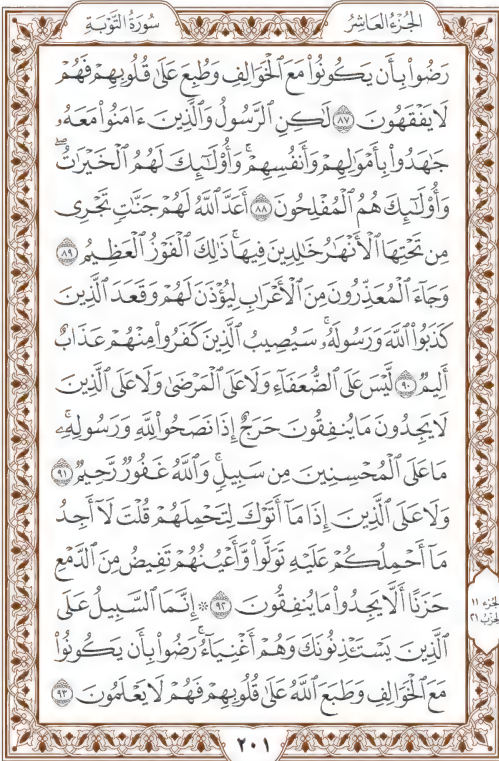 الجُزْءُ العَاشِرُ سُورَةُ التَّوْبَةِ
رَضُوا۟ بِأَن يَكُونُوا۟ مَعَ ٱلْخَوَالِفِ وَطُبِعَ عَلَىٰ قُلُوبِهِمْ فَهُمْ
لَا يَفْقَهُونَ ٨٧ لَـٰكِنِ ٱلرَّسُولُ وَٱلَّذِينَ ءَامَنُوا۟ مَعَهُۥ
جَـٰهَدُوا۟ بِأَمْوَٰلِهِمْ وَأَنفُسِهِمْ ۚ وَأُو۟لَـٰٓئِكَ لَهُمُ ٱلْخَيْرَٰتُ ۖ
وَأُو۟لَـٰٓئِكَ هُمُ ٱلْمُفْلِحُونَ ٨٨ أَعَدَّ ٱللَّهُ لَهُمْ جَنَّـٰتٍ تَجْرِى
مِن تَحْتِهَا ٱلْأَنْهَـٰرُ خَـٰلِدِينَ فِيهَا ۚ ذَٰلِكَ ٱلْفَوْزُ ٱلْعَظِيمُ ٨٩
وَجَآءَ ٱلْمُعَذِّرُونَ مِنَ ٱلْأَعْرَابِ لِيُؤْذَنَ لَهُمْ وَقَعَدَ ٱلَّذِينَ
كَذَبُوا۟ ٱللَّهَ وَرَسُولَهُۥ ۚ سَيُصِيبُ ٱلَّذِينَ كَفَرُوا۟ مِنْهُمْ عَذَابٌ
أَلِيمٌ ٩٠ لَّيْسَ عَلَى ٱلضُّعَفَآءِ وَلَا عَلَى ٱلْمَرْضَىٰ وَلَا عَلَى ٱلَّذِينَ
لَا يَجِدُونَ مَا يُنفِقُونَ حَرَجٌ إِذَا نَصَحُوا۟ لِلَّهِ وَرَسُولِهِۦ ۚ
مَا عَلَى ٱلْمُحْسِنِينَ مِن سَبِيلٍ ۚ وَٱللَّهُ غَفُورٌ رَّحِيمٌ ٩١
وَلَا عَلَى ٱلَّذِينَ إِذَا مَآ أَتَوْكَ لِتَحْمِلَهُمْ قُلْتَ لَآ أَجِدُ
مَآ أَحْمِلُكُمْ عَلَيْهِ تَوَلَّوا۟ وَّأَعْيُنُهُمْ تَفِيضُ مِنَ ٱلدَّمْعِ
حَزَنًا أَلَّا يَجِدُوا۟ مَا يُنفِقُونَ ٩٢ ۞ إِنَّمَا ٱلسَّبِيلُ عَلَى
ٱلَّذِينَ يَسْتَـْٔذِنُونَكَ وَهُمْ أَغْنِيَآءُ ۚ رَضُوا۟ بِأَن يَكُونُوا۟
مَعَ ٱلْخَوَالِفِ وَطَبَعَ ٱللَّهُ عَلَىٰ قُلُوبِهِمْ فَهُمْ لَا يَعْلَمُونَ ٩٣
الجزء ١١
الحزب ٢١
٢٠١